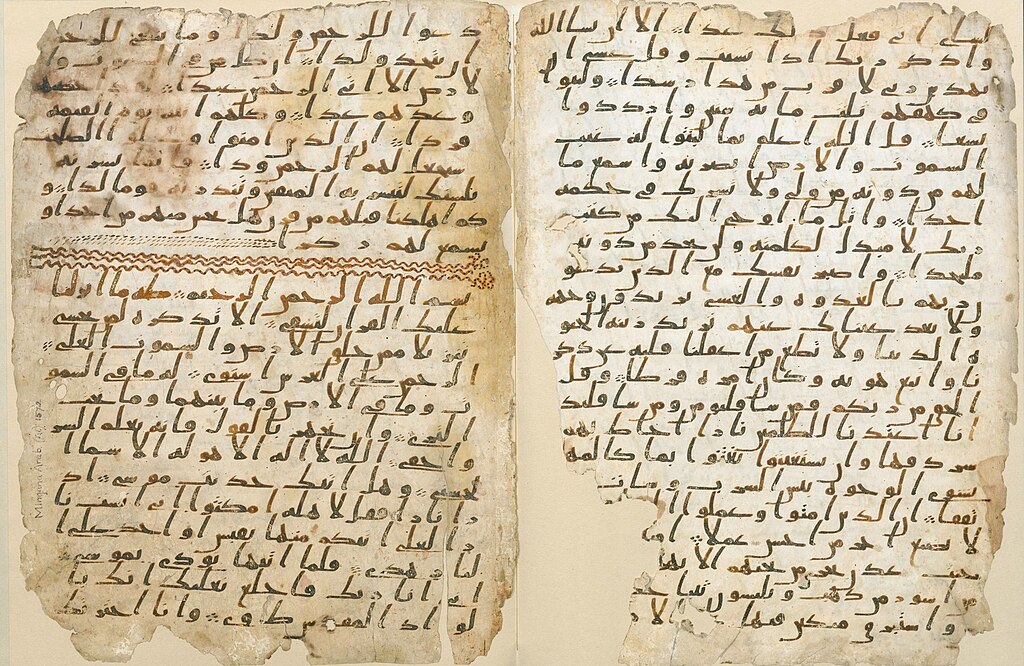 لشاى انى فعل ذلك غدا الا ان يشا الله
واذكر ربك اذا نسيت وقل عسى ان
يهدين ربى لاقرب من هذا رشدا ولبثوا
فى كهفهم ثلث مائه سنين وازددوا
تسعا قل الله اعلم بما لبثوا له غيب
السموت والارض ابصر به واسمع ما
لهم من دونه من ولى ولا يشرك فى حكمه
احدا واتل ما اوحى اليك من كتب
ربك لا مبدل لكلمته ولن تجد من دونه
ملتحدا واصبر نفسك مع الذين يدعون
ربهم بالغدوه والعشى يريدون وجهه
ولا تعد عيناك عنهم تريد زينه الحيو
ه الدنيا ولا تطع من اغفلنا قلبه عن ذكر
نا واتبع هويه وكان امره فرطا وقل
الحق من ربكم فمن شا فليومن ومن شا فليكفر
انا اعتدنا للظلمين نارا احاط بهم
سردقها وان يستغيثوا يغثوا بما كالمهل
يشوى الوجوه بئس الشرب وسات
تفقا ان الذين امنوا وعملوا ا
لا نضيع اجر من احسن عملا
عدن تجرى من تحتهم الانهر
من اسور من ذهب ويلبسون ثيابا
واستبرق متكين فيها الا
دعوا للرحمن ولدا وما ينبغى للرحمن
ان يتخذ ولدا ان كل من فى السموت وا
لارض الا اتى الرحمن عبدا لقد احصيهم
وعدهم عدا وكلهم اتيه يوم القيمه
فردا ان الذين امنوا وعملوا الصلحت
سيجعل لهم الرحمن ودا فانما يسرنه
بلسنك لتبشر به المتقين وتنذر به قوما لدا و
كم اهلكنا قبلهم من قرن هل تحس منهم من احد او
تسمع لهم ركزا
بسم الله الرحمن الرحيم طه ما انزلنا
عليك القران لتشقى الا تذكره لمن يخشى
تنزيلا ممن خلق الارض والسموت العلى
الرحمن على العرش استوى له ما فى السمو
ت وما فى الارض وما بينهما وما تحت
الثرى وان تجهر بالقول فانه يعلم السر
واخفى الله لا اله الا هو له الاسما ا
لحسنى وهل اتيك حديث موسى اذ
را نارا فقل لاهله امكثوا انى انست نا
را لعلى اتيكم منها بقبس او اجد على ا
لنار هدى فلما اتيها نودى يموسى
انى انا ربك فاخلع نعليك انك با
لواد المقدس طوى وانا اخترتك
Mingana Arab. 1572